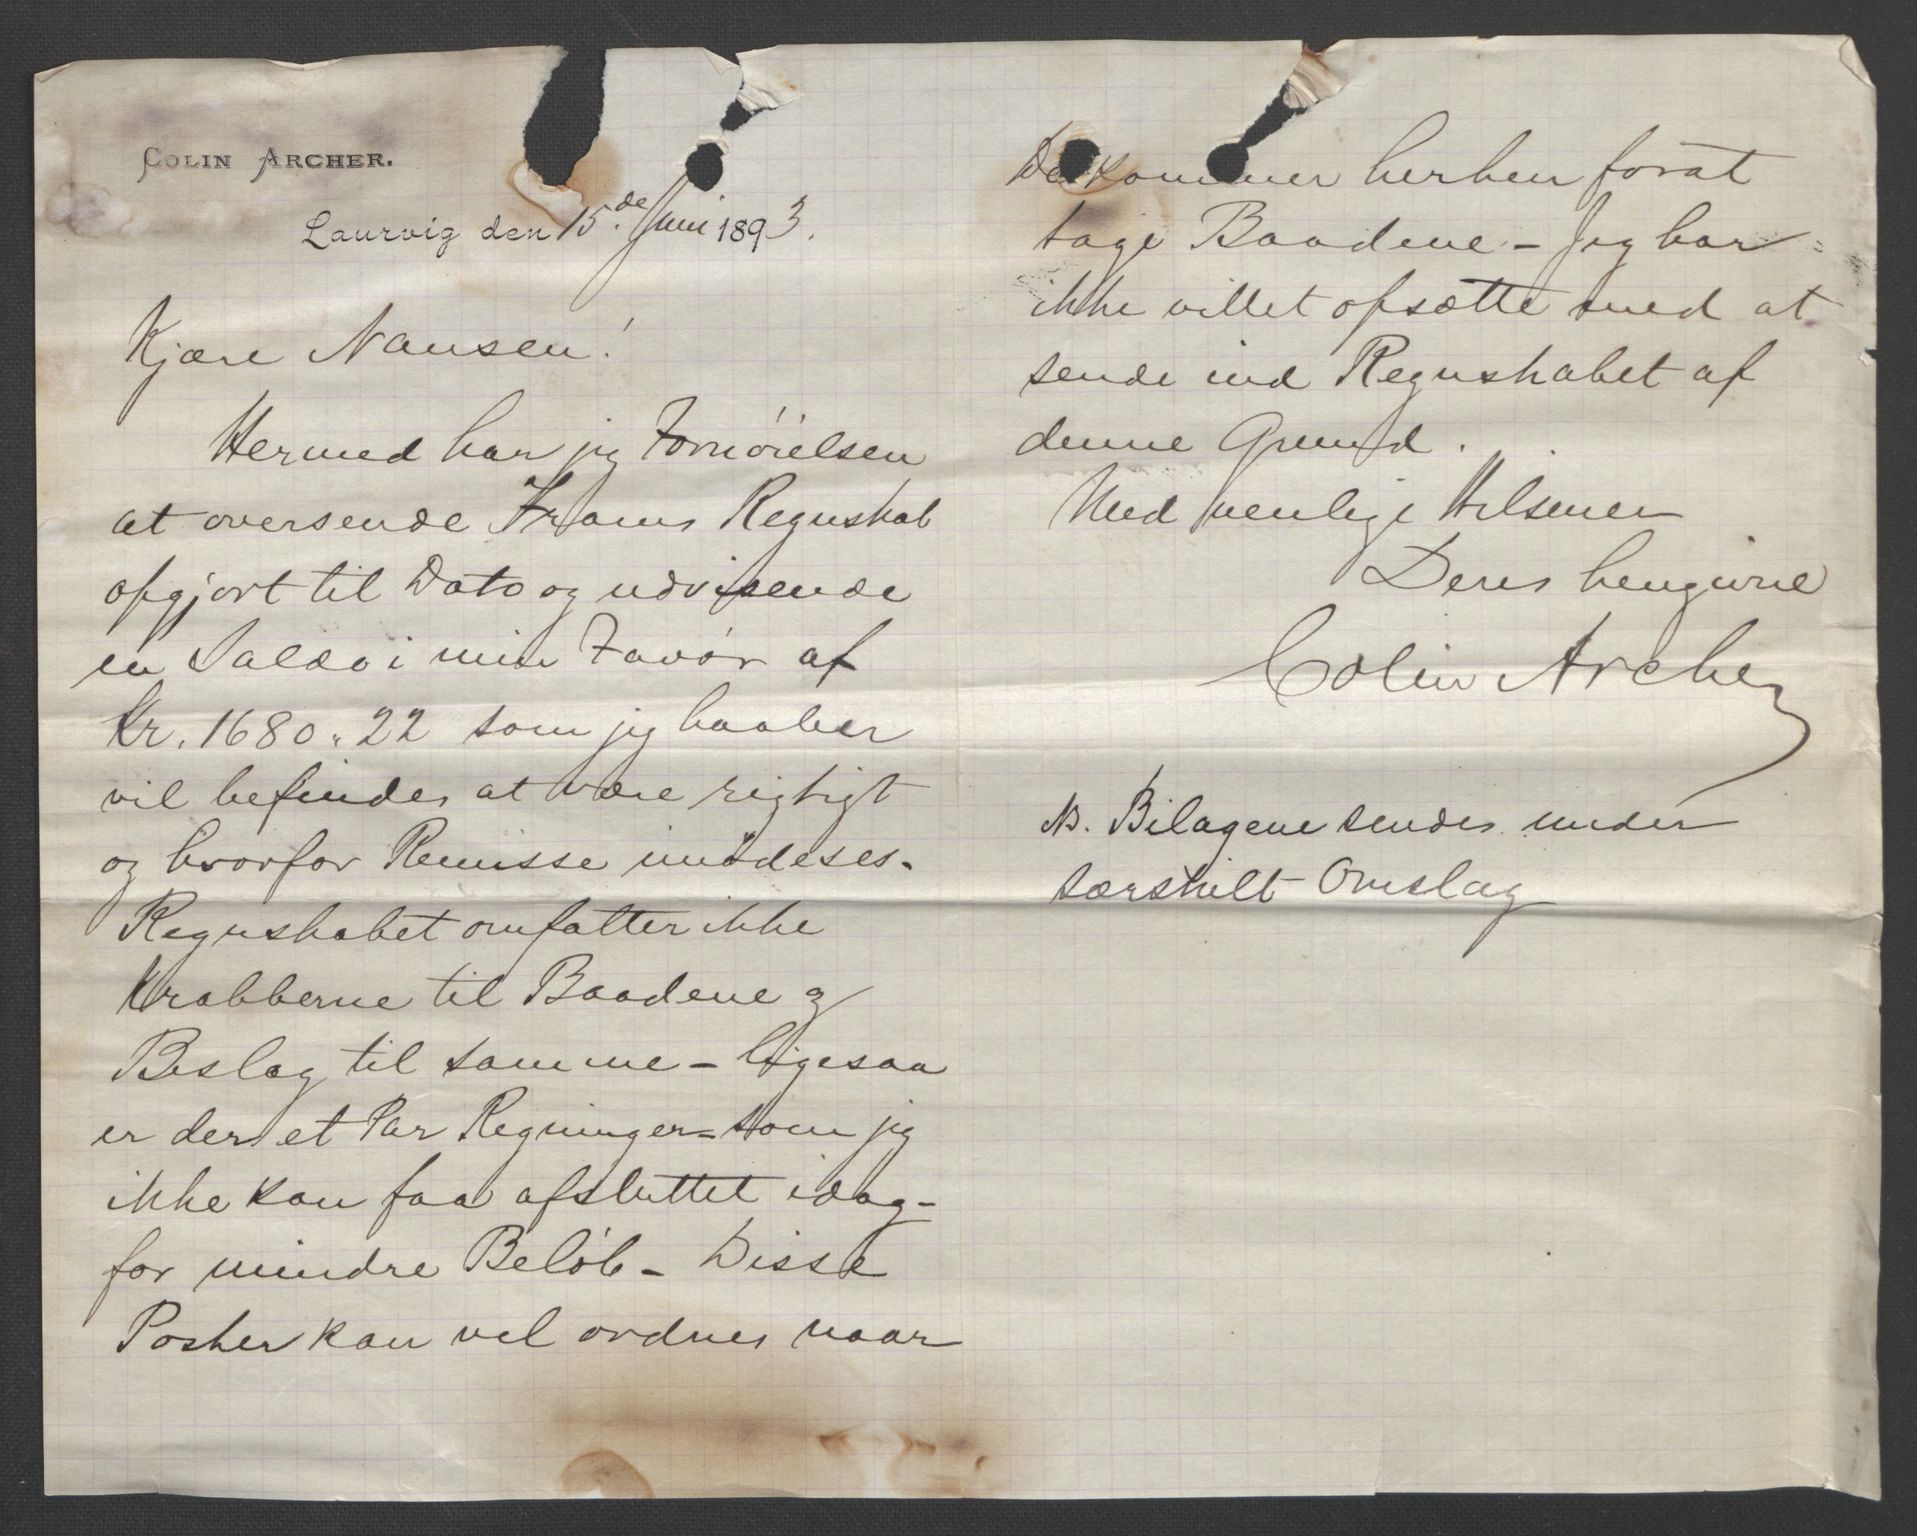 COLIN ARCHER.
Laurvig den 15.de Juni 1893.
Kjære Nansen!
Hermed har jeg Fornöielsen
at oversende Frams Regnskab
opgjort til Dato og udvisende
en Saldo i min Favör af
Kr. 1680,,22 som jeg haaber
vil befindes at være rigtigt
og hvorfor Remisse imödeses.
Regnskabet omfatter ikke
Krabberne til Baadene og
Beslag til samme – ligesaa
er der et Par Regninger – som jeg
ikke kan faa afsluttet idag –
for mindre Belöb – Disse
Poster kan vel ordnes naar
De kommer herhen forat
tage Baadene – Jeg har
ikke villet opsætte med at
sende ind Regnskabet af
denne Grund.
Med venlige Hilsener
Deres hengivne
Colin Archer
NB. Bilagene sendes under
særskilt Omslag